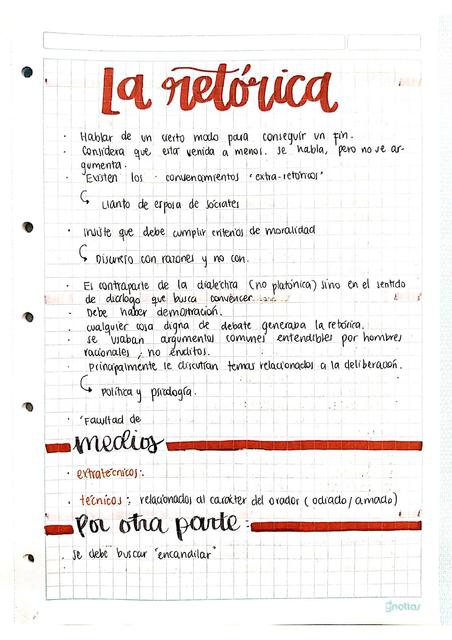 La retórica
· Hablar de un cierto modo para conseguir un fin.
· Considera que está venida a menos. se habla, pero no se ar-
gumenta.
· Existen los convencimientos "extra-retóricos"
↳ Llanto de esposa de sócrates
· Insiste que debe cumplir criterios de moralidad
↳ Discurso con razones y no con.
· Es contraparte de la dialéctica (no platónica) sino en el sentido
de diálogo que busca convencer.
· Debe haber demostración.
· cualquier cosa digna de debate generaba la retórica.
· se usaban argumentos comunes entendibles por hombres
racionales, no eruditos.
· Principalmente se discutían temas relacionados a la deliberación.
↳ Política y psicología.
· "Facultad de
medios
· extratécnicos:
· técnicos: relacionados al carácter del orador (odiado/amado)
Por otra parte:
· se debe buscar "encandilar"
gnottas